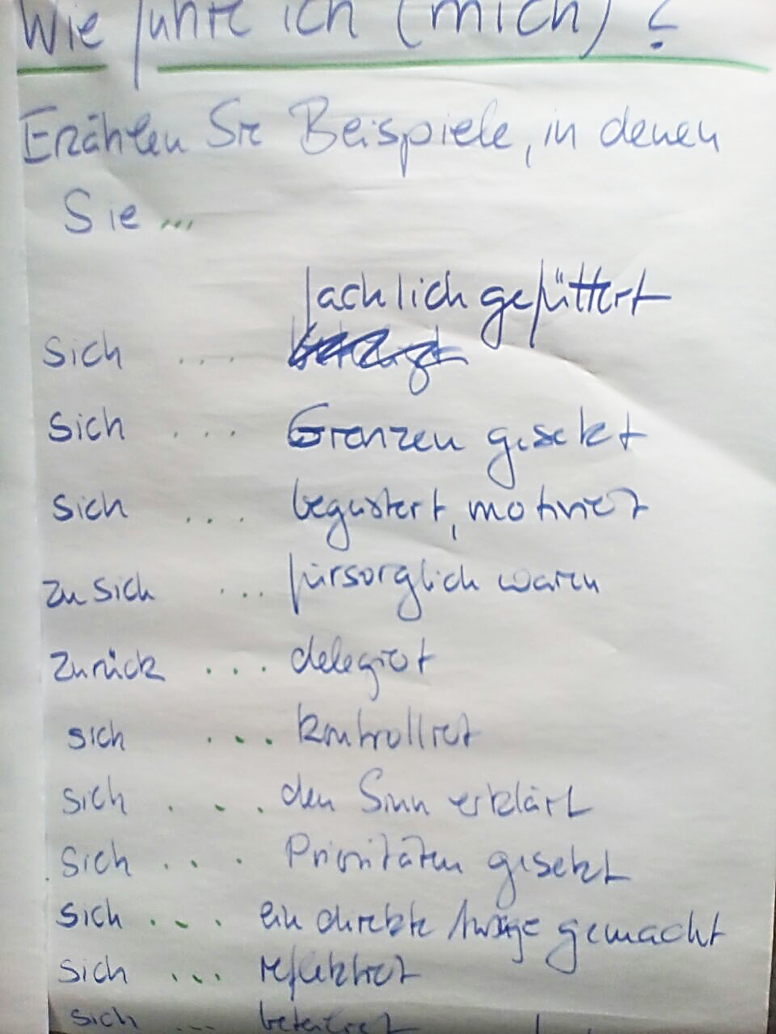 Wie führe ich (mich)?
Erzählen Sie Beispiele, in denen
Sie ...
fachlich gefüttert
sich ...
sich ... Grenzen gesetzt
sich ... begeistert, motiviert
zu sich ... fürsorglich waren
zurück ... delegiert
sich ... kontrolliert
sich ... den Sinn erklärt
sich ... Prioritäten gesetzt
sich ... ein direkte Ansage gemacht
sich ... reflektiert
sich ...